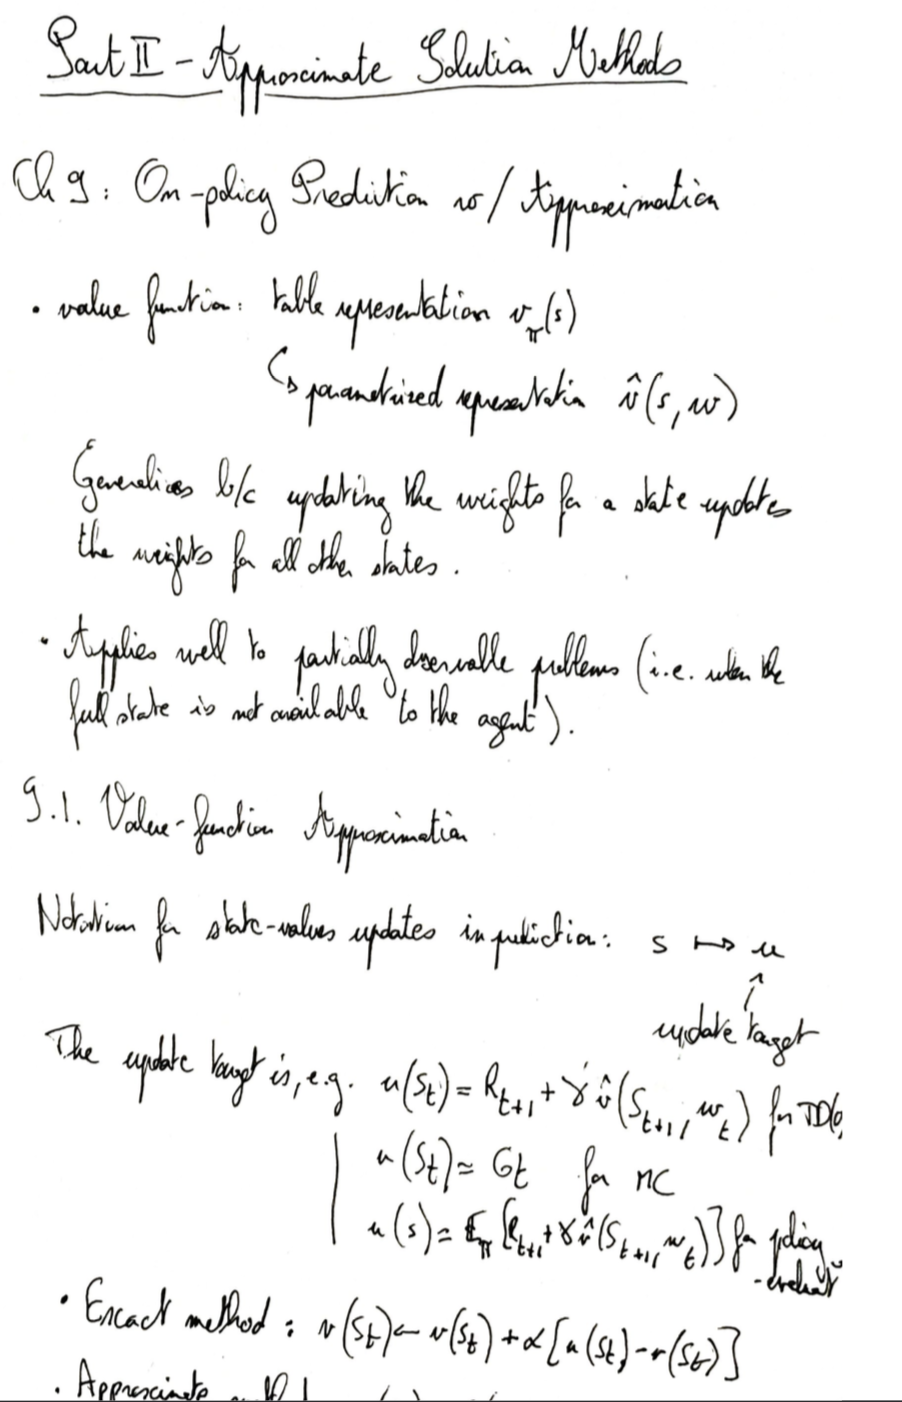 Part II - Approximate Solution Methods
Ch 9: On-policy Prediction w/ Approximation
• value function: table representation v_π(s)
↳ parametrized representation v̂(s, w)
Generalizes b/c updating the weights for a state updates
the weights for all other states.
• Applies well to partially observable problems (i.e. when the
full state is not available to the agent).
9.1. Value-function Approximation
Notation for state-values updates in prediction: s ↦ u
↑
update target
The update target is, e.g. u(S_t) = R_{t+1} + γ v̂(S_{t+1}, w_t) for TD(0)
u(S_t) = G_t for MC
u(s) = E_π[R_{t+1} + γ v̂(S_{t+1}, w_t)] for policy
-evaluat°
• Exact method: v(S_t) ← v(S_t) + α[u(S_t) - v(S_t)]
• Approximate